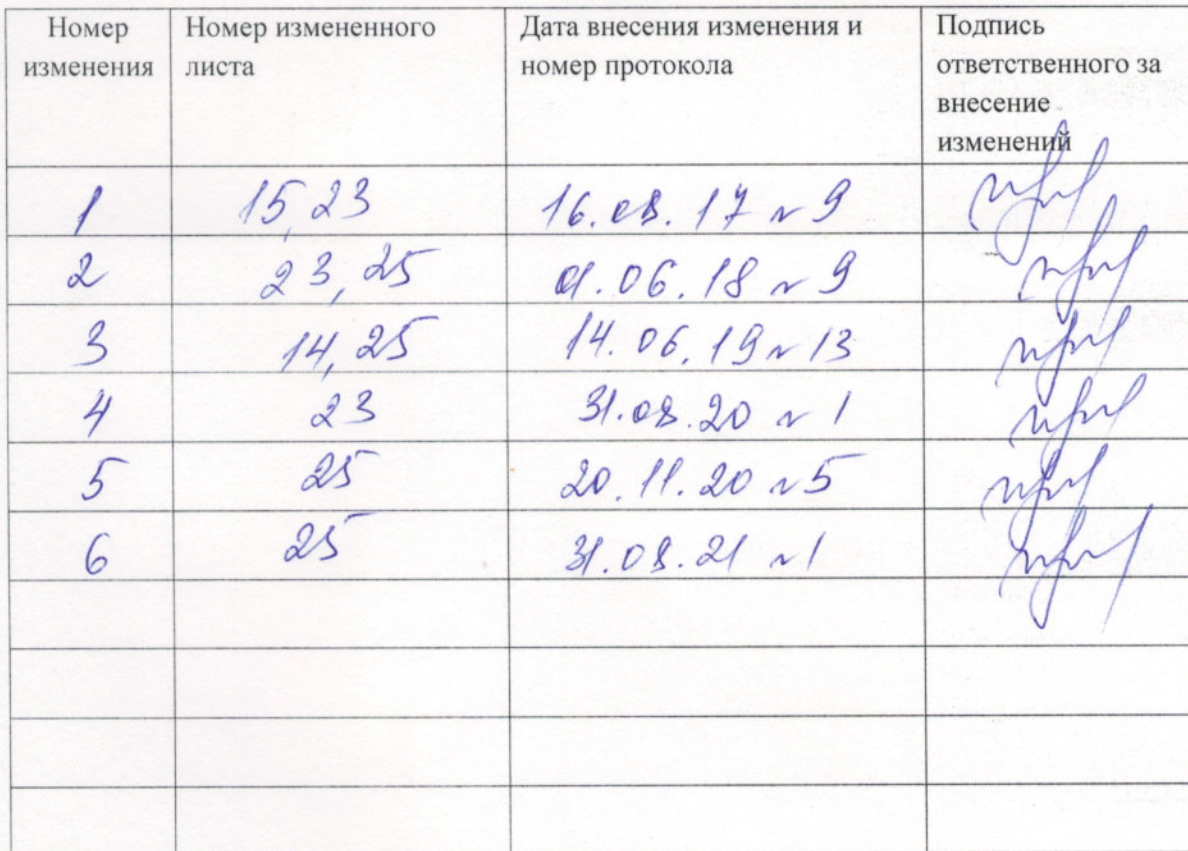 Номер изменения Номер измененного листа Дата внесения изменения и номер протокола Подпись ответственного за внесение изменений
1 15,23 16.08.17 № 9
2 23,25 01.06.18 № 9
3 14,25 14.06.19 № 13
4 23 31.08.20 № 1
5 25 20.11.20 № 5
6 25 31.08.21 № 1